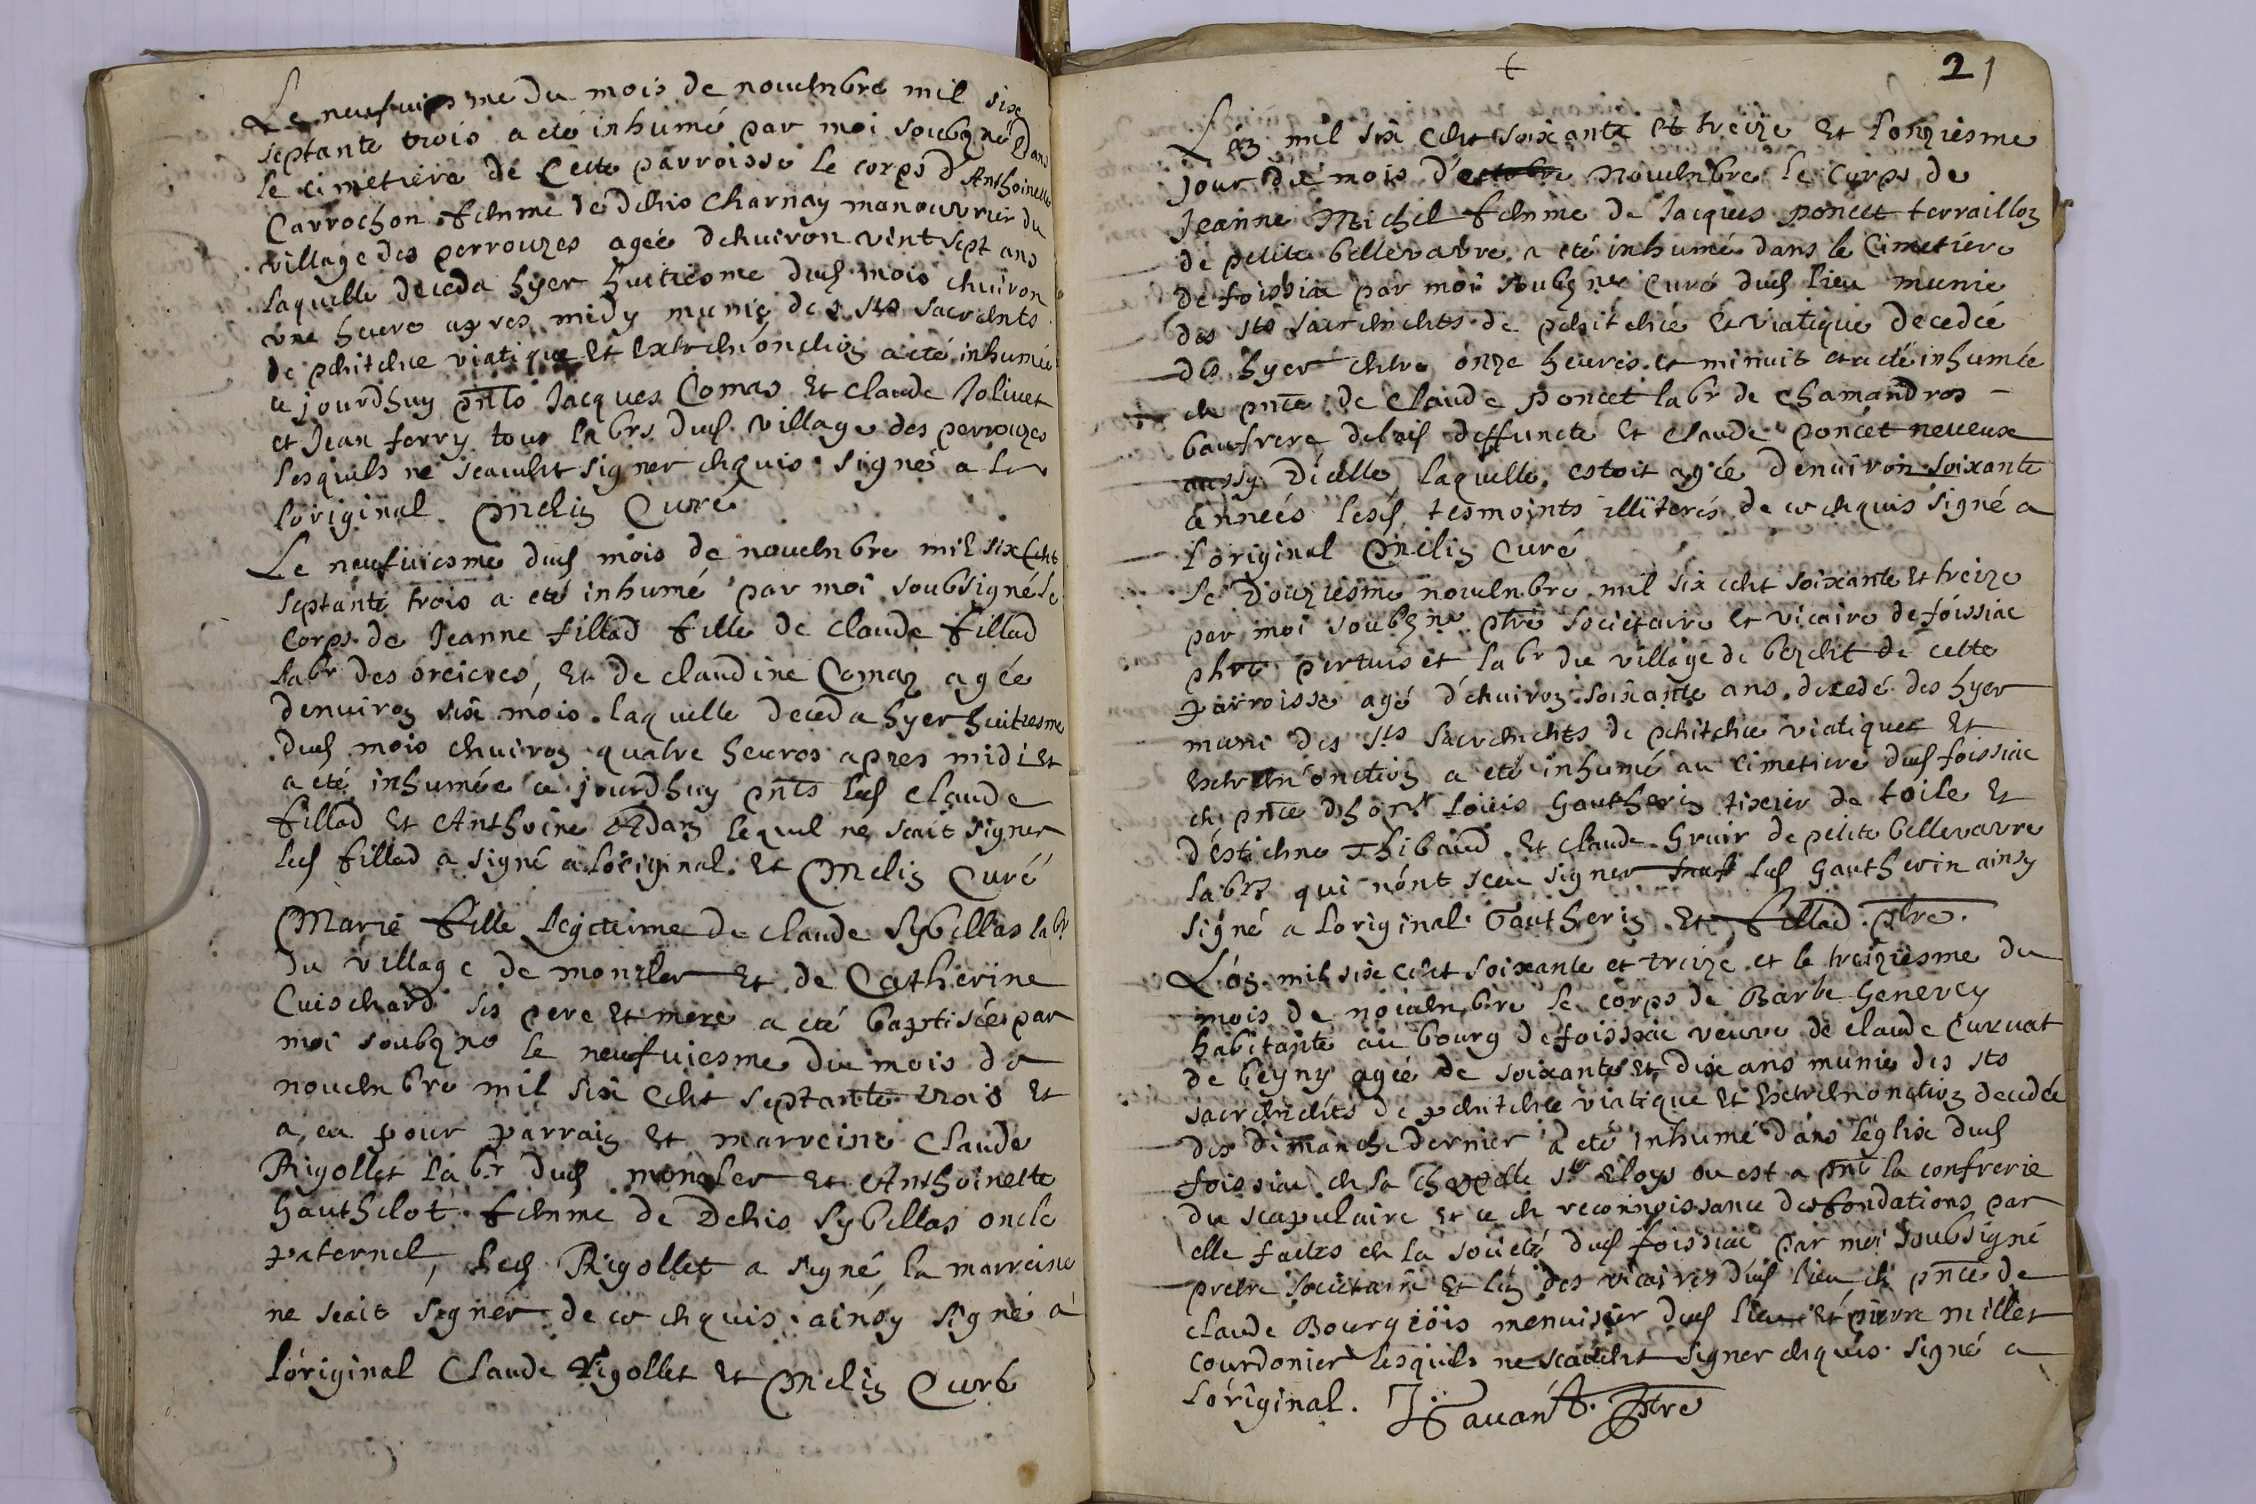 Le neufviesme du mois de novembre mil six
septante trois a eté inhumé par moi soubqné Dans
le cimetiere de Cette parroisse le corps d'Anthoinette
Carrochon femme de denis Charnay manouvrier du
village des perrouzes agée denviron vint sept ans
laquelle deceda hyer huitiesme dud. mois environ
une heure apres midy munie des sts sacrents
de penitence viatique et extremeonction a eté inhumée
ce jourdhuy pnts Jacques Comas et claude Jolivet
et Jean ferry tous labrs dud. village des perrouzes
lesquels ne scavent signer enquis. signé a
loriginal. Melin Curé
Le neufviesme dud mois de novembre mil six cent
septante trois a eté inhumé par moi soubsigné le
Corps de Jeanne fillod fille de claude fillod
labr des oreieres, et de claudine Comaz agée
denviron six mois. laquelle deceda hyer huitiesme
dud mois environ quatre heures apres midi et
a eté inhumée ce jourdhuy pnts led claude
fillod et Anthoine Adam lequel ne scait signer
led fillod a signé a loriginal. et Melin Curé
Marie fille legeteime de claude Sybellas labr
du village de monzler et de Catherine
Cuischard ses pere et mere a eté baptisée par
moi soubqné le neufviesme du mois de
novembre mil six cent septante trois et
a eu pour parrain et marreine Claude
Rigollet labr dud monzler et Anthoinette
hauthelot. femme de Denis Sybellas oncle
paternel, led Rigollet a signé, la marreine
ne scait signer de ce enquis. ainsy signé a
loriginal Claude Rigollet et Melin Curé
21
L'an mil six cent soixante et treize et l'onziesme
jour du mois d'octobre novembre le Corps de
Jeanne Michel femme de Jacques poncet terraillon
de petite bellevavre a eté inhumé dans le Cimetiere
de foissiac par moi soubqné Curé dud lieu munie
des sts sacrements de penitence et viatique decedée
des hyer entre onze heures et minuit et a eté inhumée
en pnce de Claude poncet labr de Chamandros
baufrere de lad deffuncte et Claude poncet neveux
aussy d'icelle, laquelle estoit agée denviron soixante
années lesd tesmoints illiterés de ce enquis signé a
l'original Melin Curé
Le Douziesme novembre mil six cent soixante et treize
par moi soubqné ptre societaire et vicaire de foissiac
phre pertuiset labr du village de bezenet de cette
parroisse agé d'environ soixante ans. decedé des hyer
muni des sts sacrements de penitence viatique et
extremonction a eté inhumé au cimetiere dud foissiac
en pnce d'hon. Loüis Gautherin tixier de toile et
d'éstienne Thibaud. et claude Gruir de petite bellevavre
labrs qui nont sceu signer sauf led Gautherin ainsy
signé a loriginal. Gautherin et fillod. ptre.
L'an mil six cent soixante et treize et le treiziesme du
mois de novembre le corps de Barbe Genevey
habitante au bourg de foissiac veuve de claude Curvat
de beyny agée de soixante et dix ans munie des sts
sacrements de penitence viatique et extremonction decedée
des dimanche dernier a eté inhumé dans léglise dud
foissiac en la Chappelle st Eloys ou est a pnt la confrerie
du scapulaire et ce en reconnoissance des fondations par
elle faites en la société dud foissiac par moi soubsigné
pretre societaire et l'un des vicaires dud lieu en pnce de
claude Bourgeois menuisier dud lieu et pierre millet
courdonier lesquels ne scavent signer enquis. signé a
loriginal. Ptre